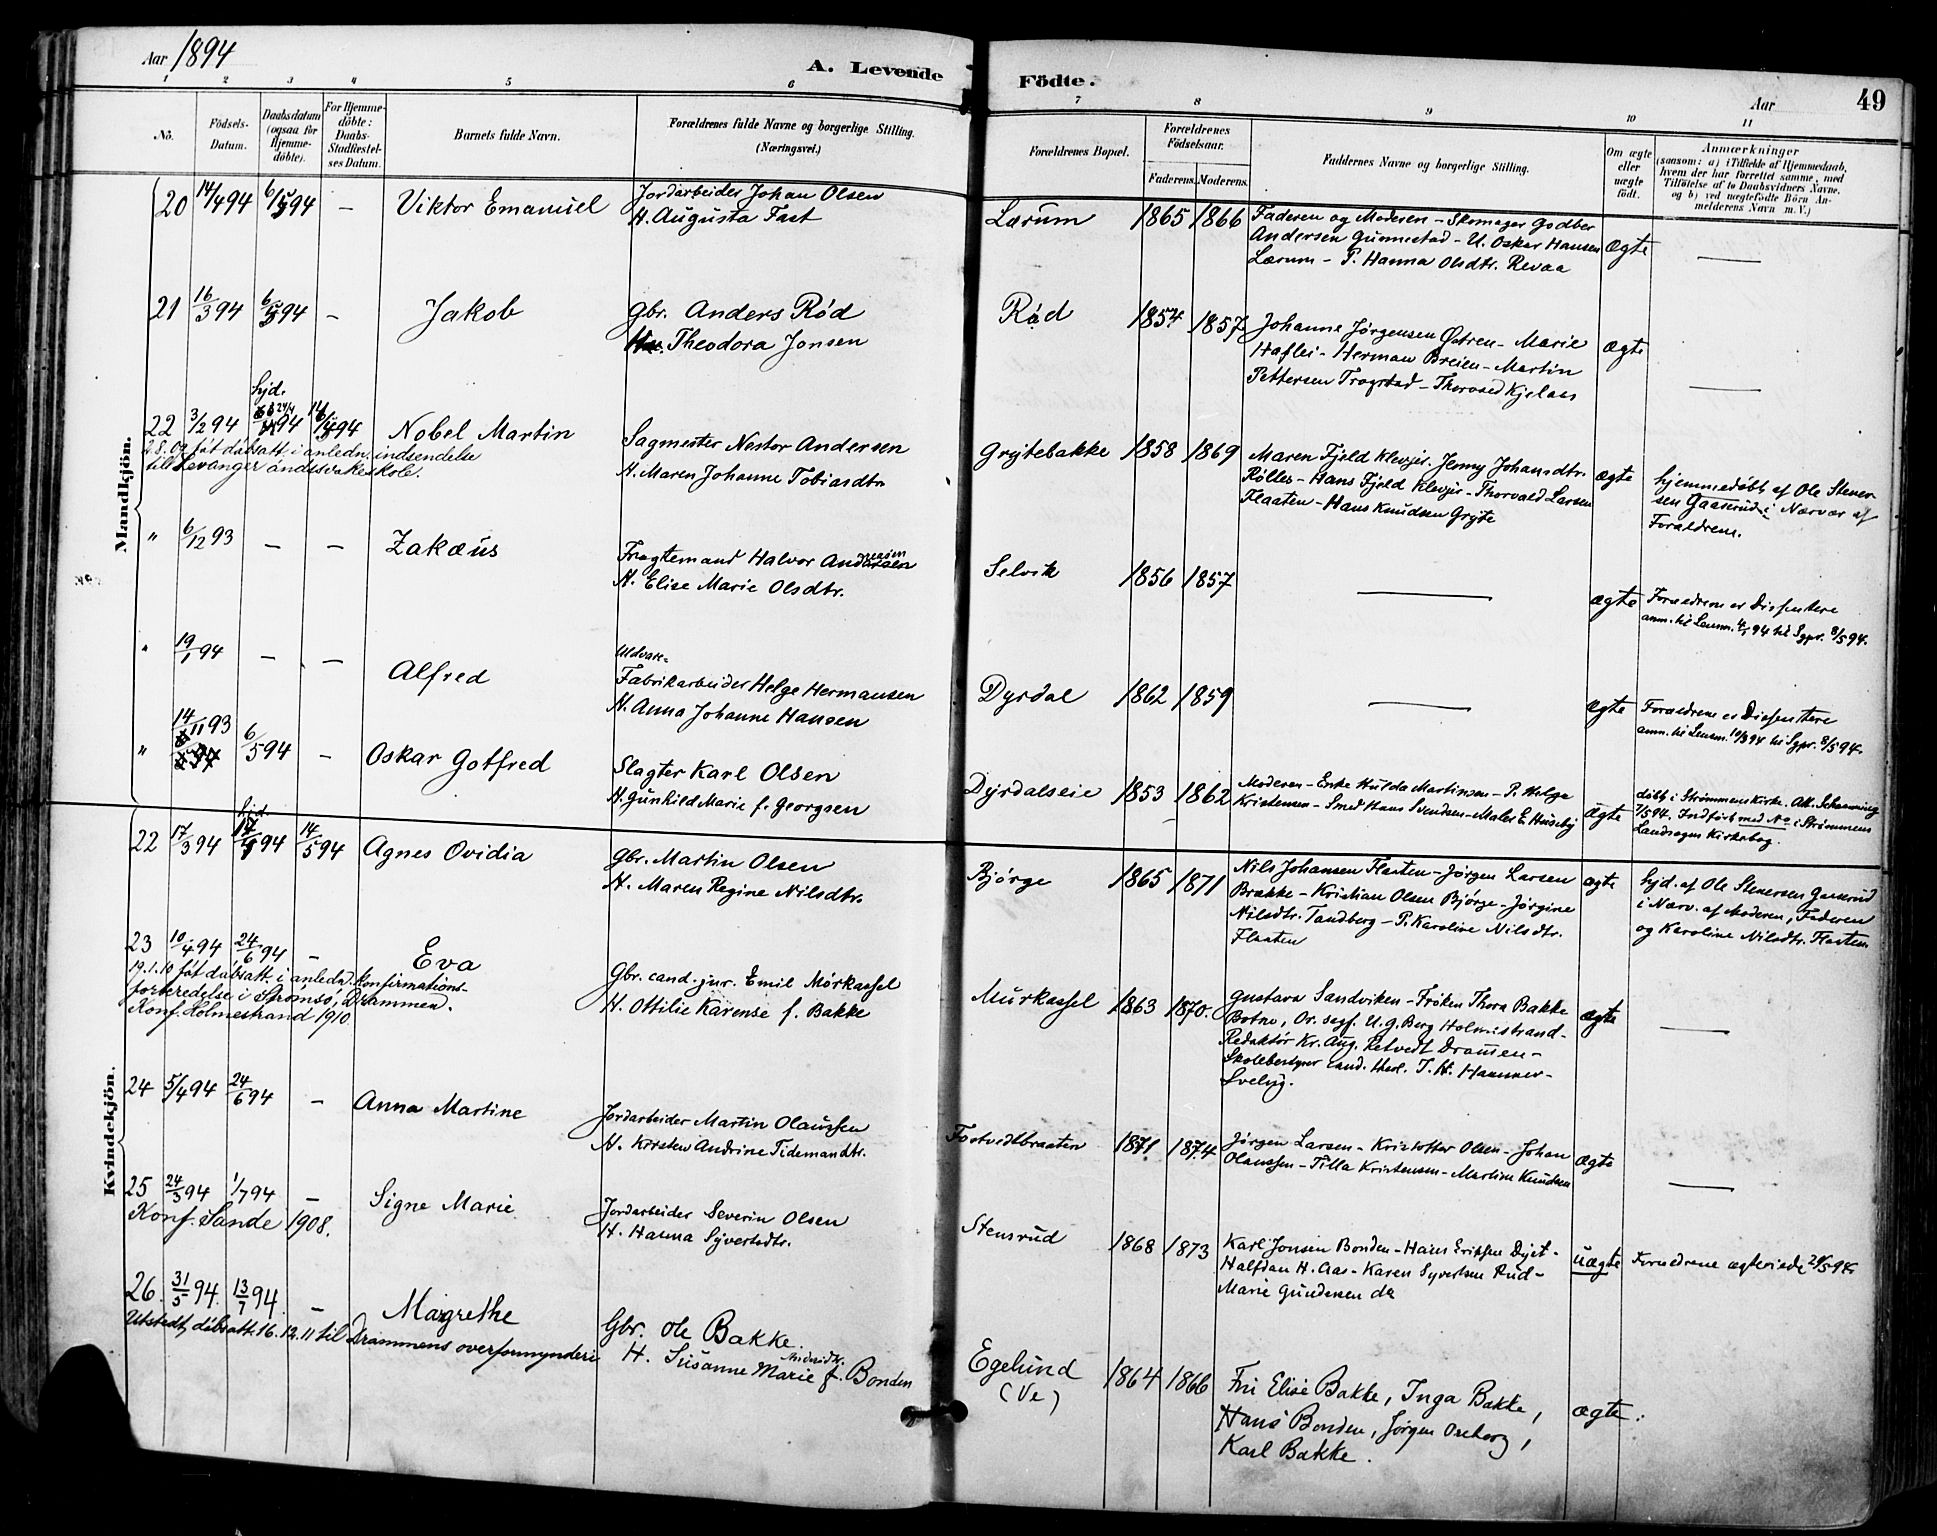 Aar 1894
A. Levende Födte.
Aar
49
1 2 3 4 5 6 7 8 9 10 11
No.
Födsels-Datum.
Daabsdatum (ogsaa for Hjemmedöbte).
For Hjemmedöbte: Daabs-Stadfæstelses Datum.
Barnets fulde Navn.
Forældrenes fulde Navne og borgerlige Stilling.
(Næringsvei.)
Forældrenes Bopæl.
Forældrenes Födselsaar.
Faderens. Moderens.
Faddernes Navne og borgerlige Stilling.
Om ægte eller uægte födt.
Anmærkninger
(saasom: a) i Tilfælde af Hjemmedaab,
hvem der har forrettet samme, med
Tilföielse af to Daabsvidners Navne,
og b) ved uægtefödte Börn Anmelderens Navn m. V.)
Mandkjön.
20 14/4 94 6/5 94 — Viktor Emanuel
Jordarbeider Johan Olsen
H. Augusta Fast
Lærum 1865 1866
Faderen og Moderen - Skomager Godber
Andersen Gunnestad - U. Oskar Hansen
Lærum - P. Hanna Olsdtr. Revaa
ægte —
21 16/3 94 6/5 94 — Jakob
Gbr. Anders Rød
Theodora Jonsen
Rød 1854 1857
Johanne Jørgensen Østren - Marie
Haflei - Herman Breien - Martin
Pettersen Trogstad - Thorvald Kjelaas
ægte —
hjd.
22 3/2 94 94 94 Nobel Martin
28.8.09 fåt dåbsatt. i anledn. indsendelse
till Levanger åndssvakeskole.
Sagmester Nestor Andersen
H. Maren Johanne Tobiasdtr.
Grytebakke 1858 1869
Maren Fjeld Klevjer. Jenny Johansdtr.
Rølles - Hans Fjeld Klevjer - Thorvald Larsen
Flaaten - Hans Knudsen Gryte
ægte
hjemmedøbt af Ole Stenersen
Gaaserud i Nærvær af
Forældrene.
" 6/12 93 — — Zakæus
Fragtemand Halvor Andersen
H. Elise Marie Olsdtr.
Selvik 1856 1857 —
ægte
Forældrene er Dissentere
anm. til Lensm. 4/1 94 til Sgpr. 8/5 94.
" 19/1 94 — — Alfred
Uldvare-
Fabrikarbeider Helge Hermansen
H. Anna Johanne Hansen
Dyrdal 1862 1859 —
ægte
Forældrene er Dissentere
anm. til Lensm. 10/3 94 til Sgpr. 8/5 94.
" 14/11 93 6/5 94 — Oskar Gotfred
Slagter Karl Olsen
H. Gunhild Marie f. Georgsen
Dyrdalseie 1853 1862
Moderen - Enke Hulda Martinsen - P. Helga
Kristensen - Smed Hans Svendsen - Maler E. Huseby
ægte
døbt i Strømmens Kirke. Att. Schanning
7/5 94. Indført med No i Strømmens
Landsogns Kirkebog.
Kvindekjön.
hjd.
22 17/3 94 94 14/5 94 Agnes Ovidia
Gbr. Martin Olsen
H. Maren Regine Nilsdtr.
Bjørge 1865 1871
Nils Johansen Flaaten - Jørgen Larsen
Brække - Kristian Olsen Bjørge - Jørgine
Nilsdtr. Tandberg - P. Karoline Nilsdtr.
Flaaten
ægte
hjd. af Ole Stenersen Gaaserud
i Nærv. af Moderen, Faderen
og Karoline Nilsdtr. Flaaten
23 10/4 94 24/6 94 — Eva
19.1.10 fåt dåbsatt. i anledn. konfirmations-
forberedelse i Strømsø, Drammen.
Konf. Holmestrand 1910.
Gbr. cand. jur. Emil Mørkassel
H. Ottilie Karense f. Bakke
Murkassel 1863 1870.
Gustava Sandviken - Frøken Thora Bakke
Botne, Or. sagf. U. G. Berg Holmestrand -
Redaktør Kr. Aug. Retvedt Drammen -
Skolebestyrer cand. theol. J. H. Hammer -
Svelvig.
ægte —
24 5/4 94 24/6 94 — Anna Martine
Jordarbeider Martin Olaussen
H. Kirsten Andrine Tidemandtr.
Fostvedtbraaten 1871 1874
Jørgen Larsen - Kristoffer Olsen - Johan
Olaussen - Tilla Kristensen - Martine Knudsen
ægte —
25 24/3 94 1/7 94 — Signe Marie
Konf. Sande 1908.
Jordarbeider Severin Olsen
H. Hanna Syvertsdtr.
Stensrud 1868 1873
Karl Jonsen Bonden - Hans Eriksen Dyet -
Halfdan H. Aas - Karen Syvertsen Rud -
Marie Gundersen do
uægte
Forældrene ægteviede 20/5 94
26. 31/5 94. 13/7 94. — Magrethe
Utstedt dåbsatt. 16.12.11 til Drammens overformynderi
Gbr. Ole Bakke.
H. Susanne Marie f. Bonden
Egelund
(Ve)
1864 1866
Fru Elise Bakke, Inga Bakke,
Hans Bonden, Jørgen Oseberg,
Karl Bakke.
ægte.